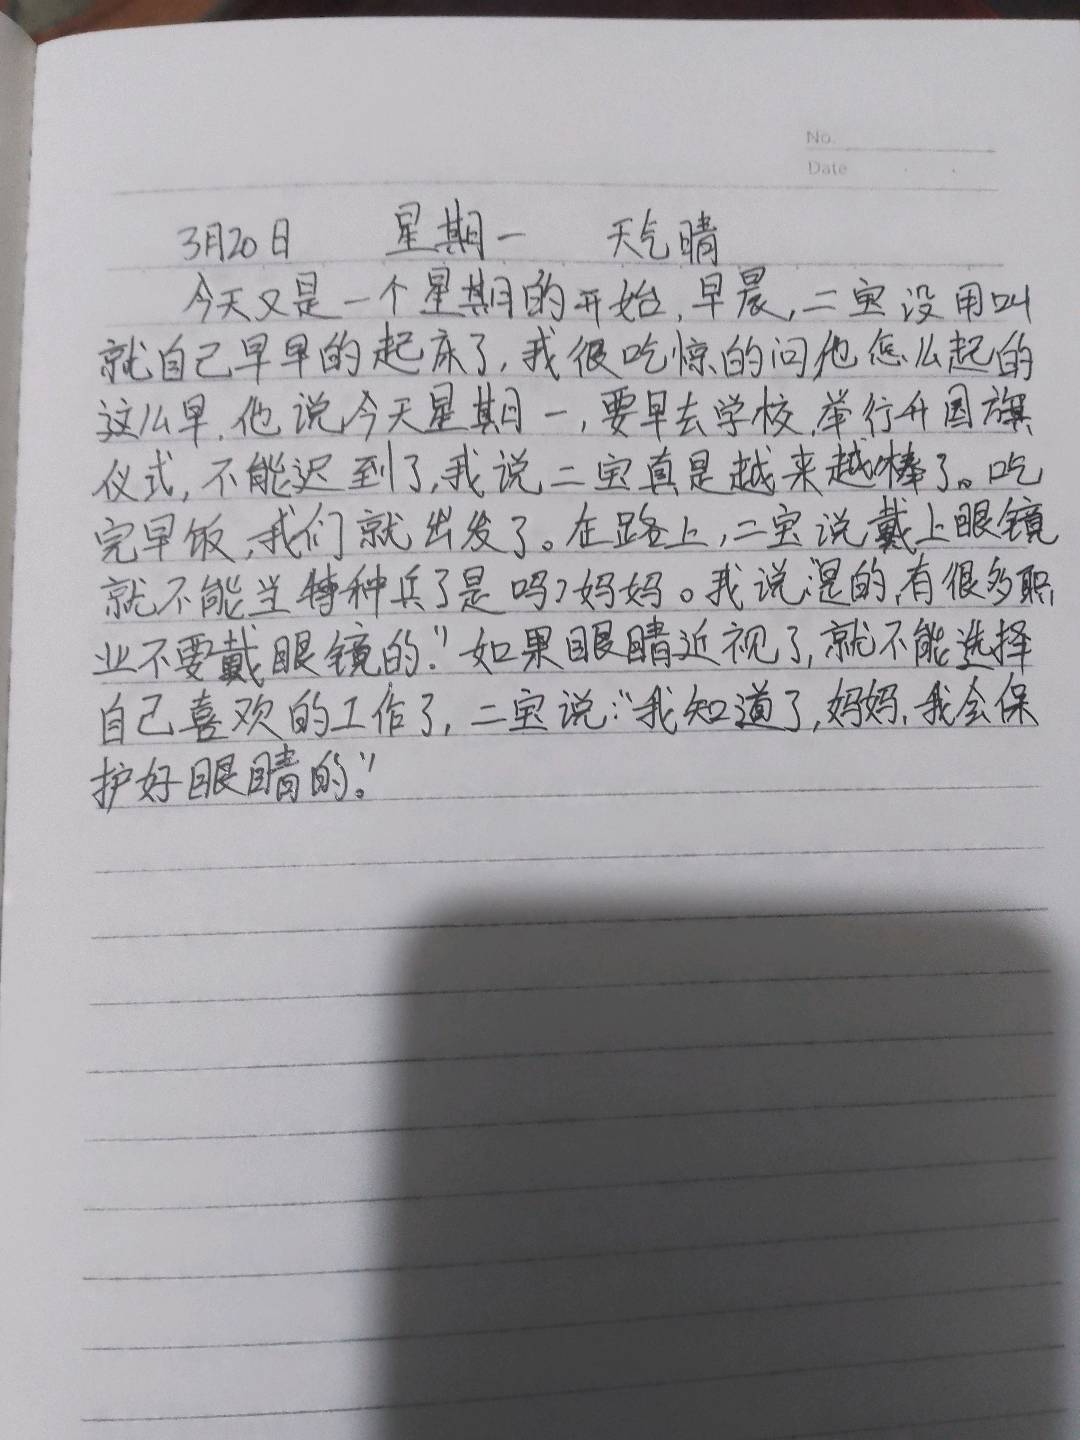 No.
Date
3月20日 星期一 天气晴
今天又是一个星期的开始,早晨,二宝没用叫
就自己早早的起床了,我很吃惊的问他怎么起的
这么早,他说今天星期一,要早去学校,举行升国旗
仪式,不能迟到了,我说二宝真是越来越棒了。吃
完早饭,我们就出发了。在路上,二宝说戴上眼镜
就不能当特种兵了是吗?妈妈。我说:是的,有很多职
业不要戴眼镜的."如果眼睛近视了,就不能选择
自己喜欢的工作了,二宝说:"我知道了,妈妈,我会保
护好眼睛的。"